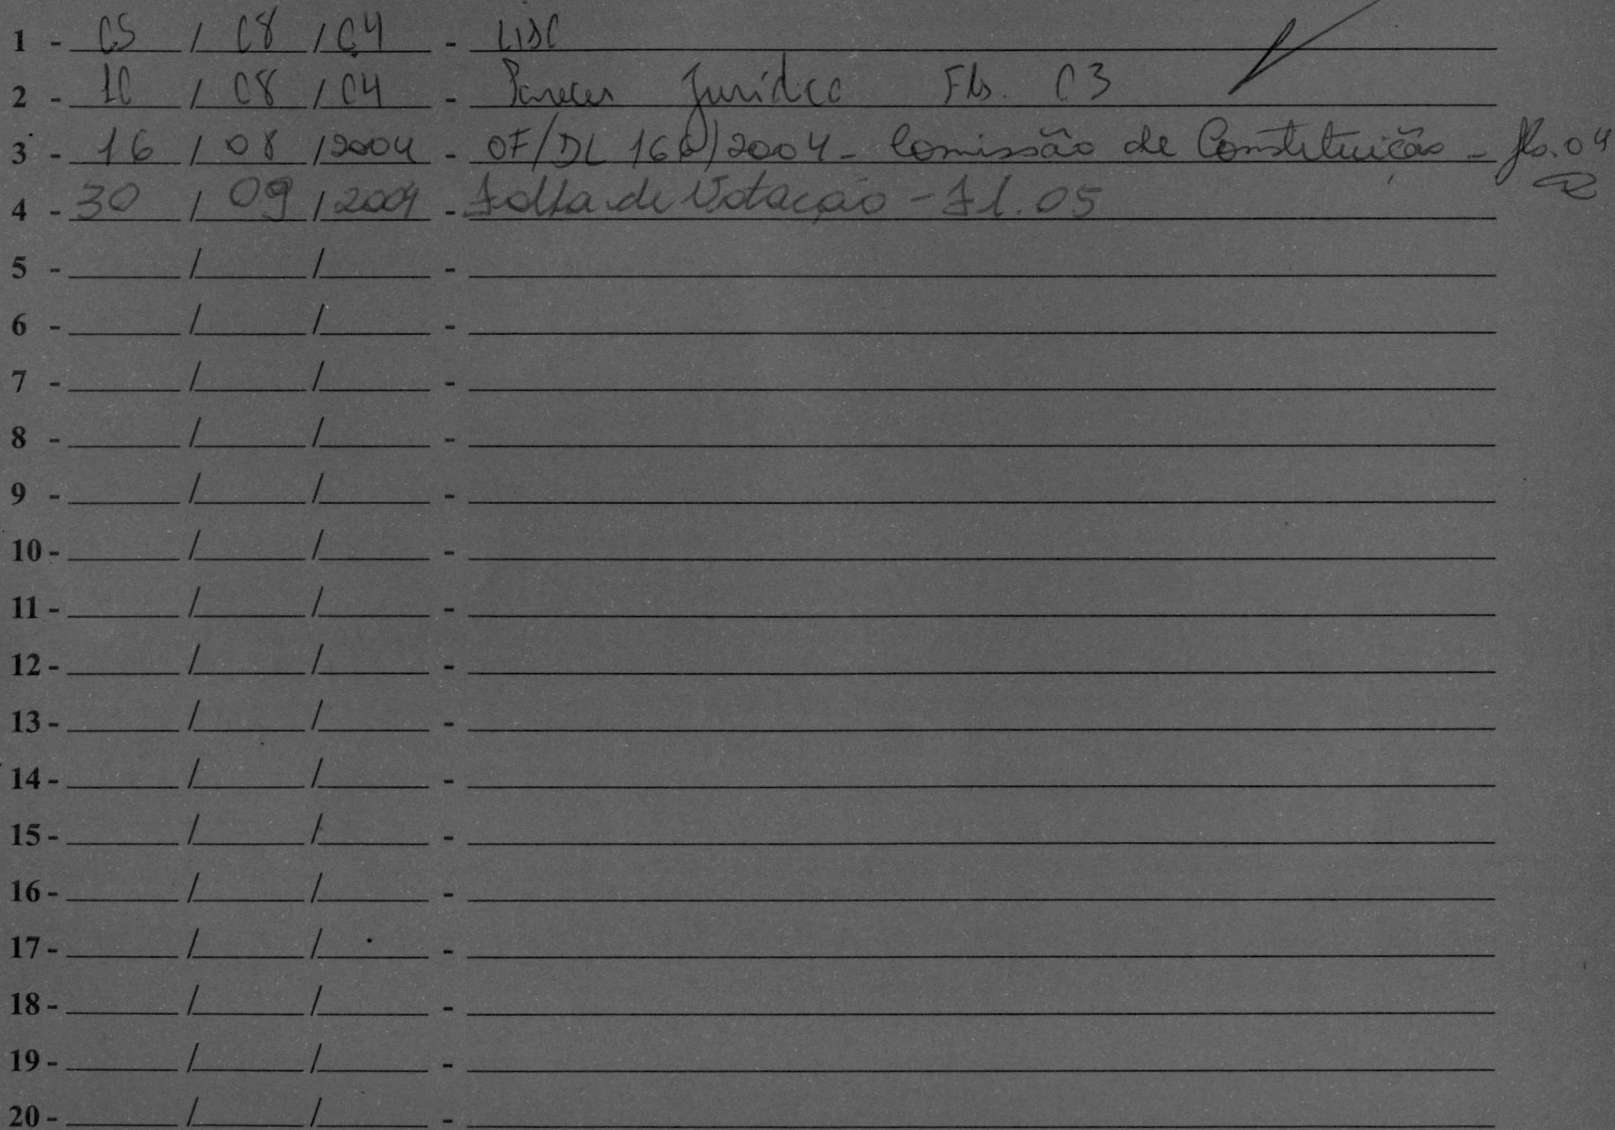 1 - 05 / 08 / 04 - LIDO
2 - 10 / 08 / 04 - Parecer Jurídico Fls. 03
3 - 16 / 08 / 2004 - OF/DL 160/2004 - Comissão de Constituição - fls. 04
4 - 30 / 09 / 2004 - Folha de Votação - Fl. 05
5 - / / -
6 - / / -
7 - / / -
8 - / / -
9 - / / -
10 - / / -
11 - / / -
12 - / / -
13 - / / -
14 - / / -
15 - / / -
16 - / / -
17 - / / -
18 - / / -
19 - / / -
20 - / / -